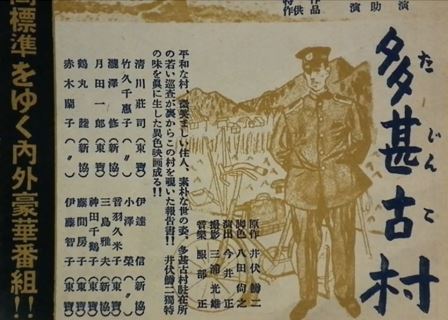 多甚古村
たじんこ
原作 井伏鱒二
脚色 八田尚之
演出 今井正
撮影 三浦光雄
音樂 服部正
平和な村、微笑ましい住人、素朴な世の姿、多甚古村駐在所
の若い巡査が裏からこの村を覗いた報告書!! 井伏鱒二獨特
の味を眞に生した異色映画成る!!
清川荘司(東寶)
竹久千惠子(〃)
瀧澤修(新協)
月田一郎(東寶)
鶴丸睦(新協)
赤木蘭子(〃)
伊達信(新協)
小澤榮(〃)
音羽久米子(東寶)
三島雅夫(新協)
神田千鶴子(東寶)
藤間房子(東寶)
伊藤智子(東寶)
標準をゆく内外豪華番組!!